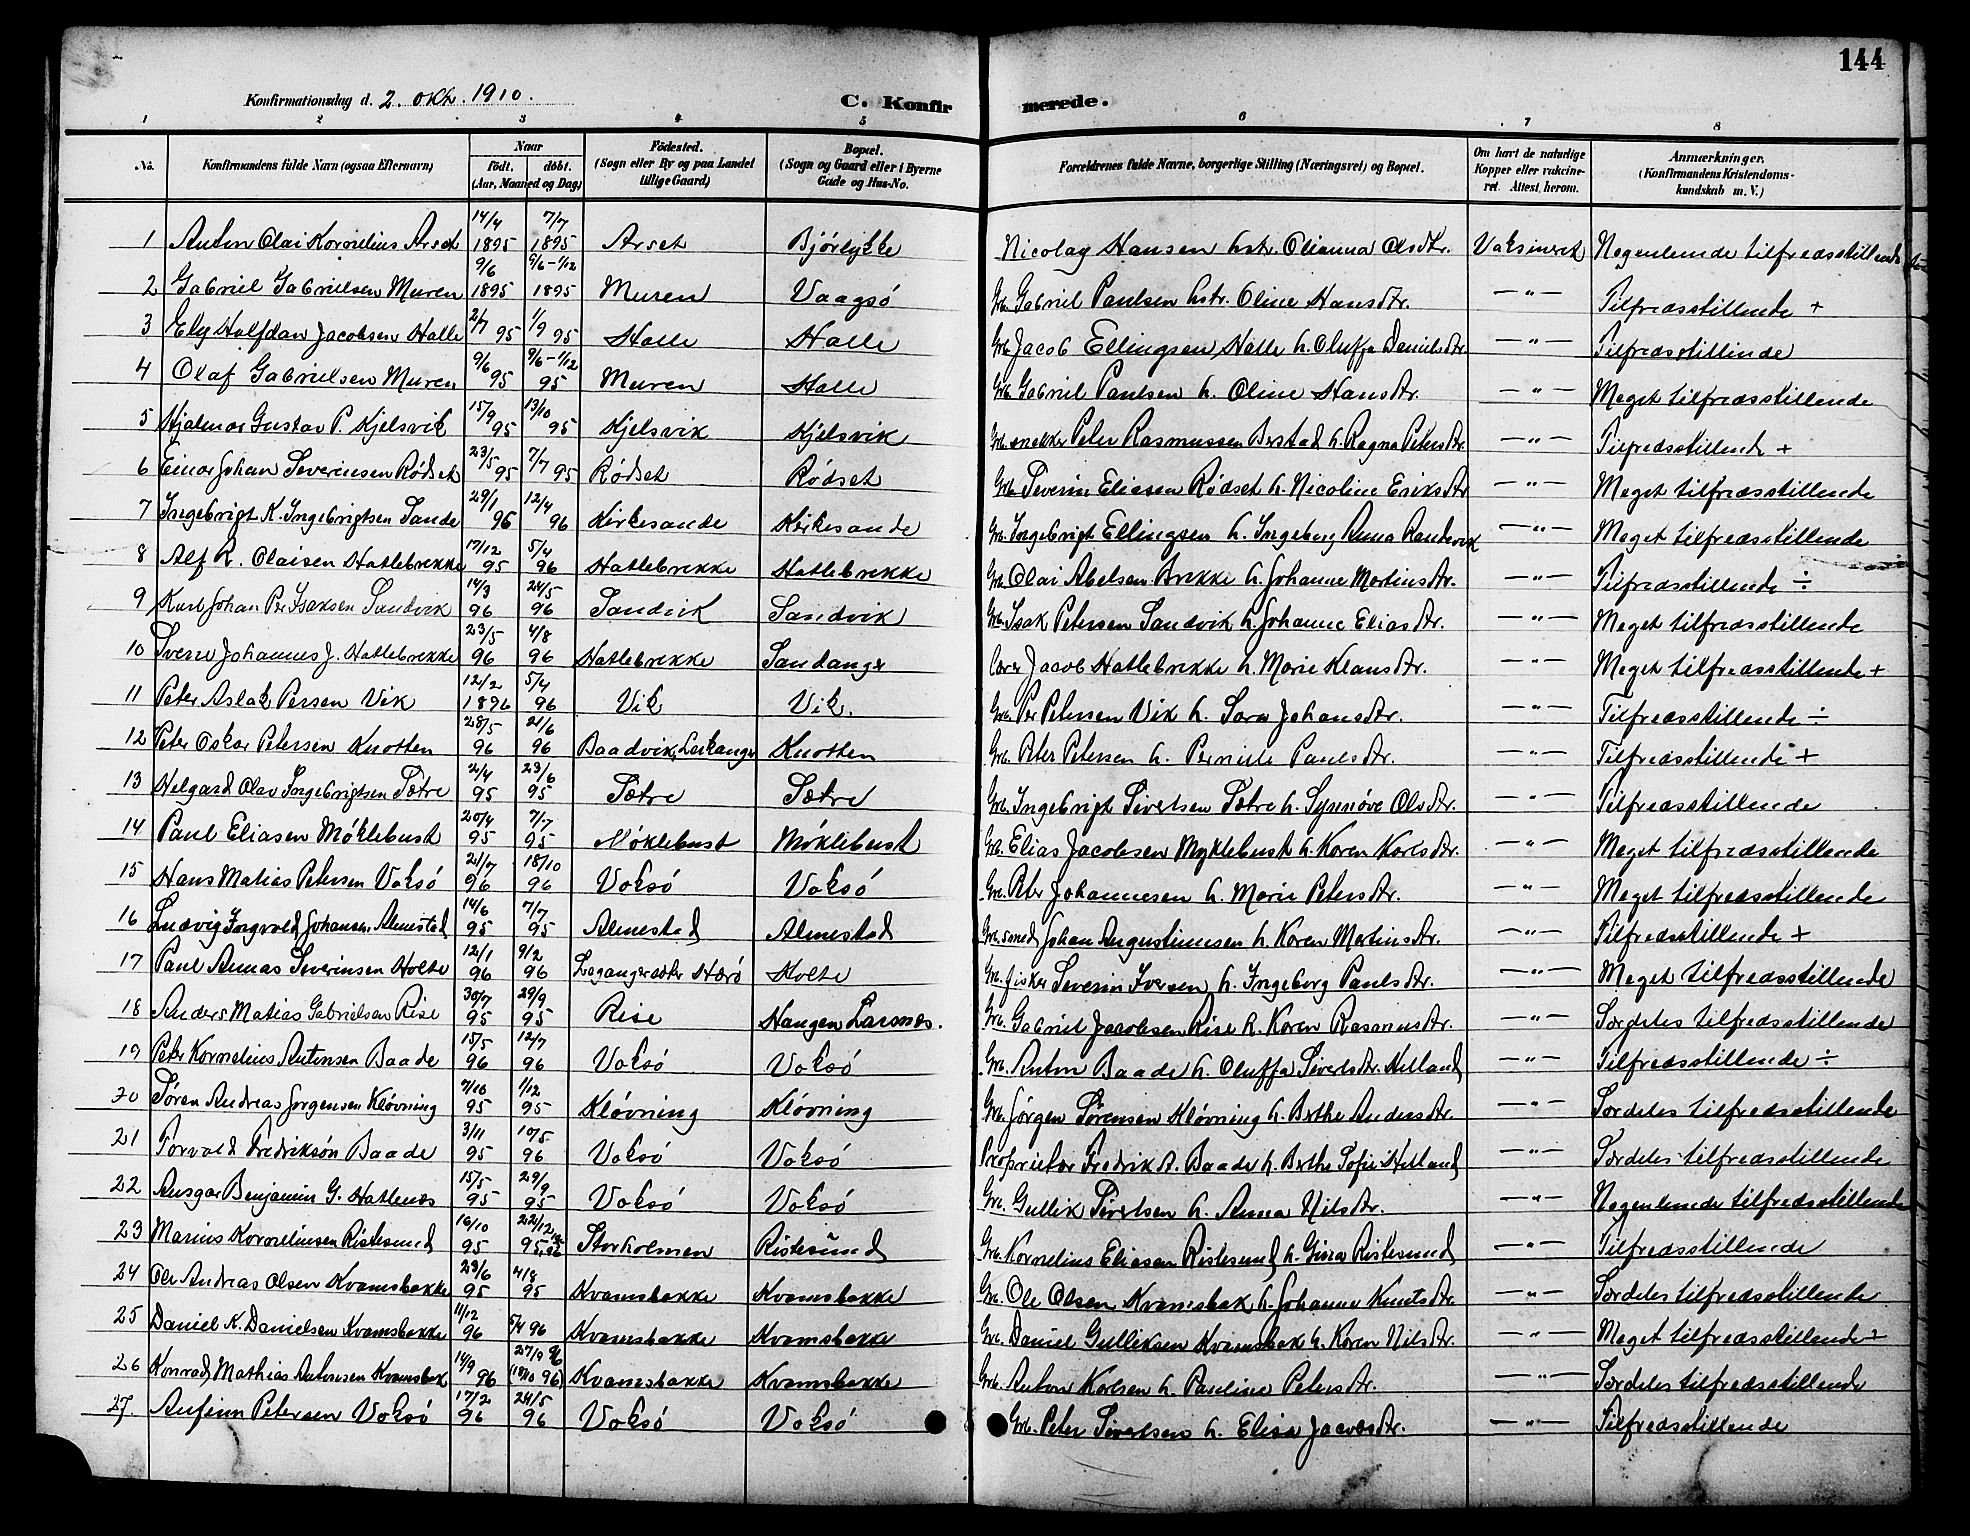 144
Konfirmationsdag d. 2. okt. 1910. C. Konfirmerede.
1 2 3 4 5 6 7 8
No. Konfirmandens fulde Navn (ogsaa Efternavn) Naar födt. döbt. (Aar, Maaned og Dag) Födested. (Sogn eller By og paa Landet tillige Gaard) Bopæl. (Sogn og Gaard eller i Byerne Gade og Hus-No. Forældrenes fulde Navne, borgerlige Stilling (Næringsvei) og Bopæl. Om havt de naturlige Kopper eller vakcineret. Attest. herom. Anmærkninger. (Konfirmandens Kristendomskundskab m. V.)
1 Anton Olai Kornelius Arset 14/4 1895 7/7 1895 Arset Bjørlykke Nicolay Hansen hstr. Olianna Olsdtr. Vaksineret Nogenlunde tilfredsstillende
2 Gabriel Gabrielsen Muren 9/6 1895 9/6-1/12 1895 Muren Vaagsö Grb. Gabriel Paulsen hstr. Oline Hansdtr. —"— Tilfredsstillende +
3 Halfdan Jacobsen Halle 2/7 95 1/9 95 Halle Halle Grb. Jacob Ellingsen Halle h. Oluffa Danielsdtr. —"— Tilfredsstillende
4 Olaf Gabrielsen Muren 9/6 95 9/6-1/12 95 Muren Halle Grb. Gabriel Paulsen h. Oline Hansdtr. —"— Meget tilfredsstillende
5 Hjalmar Gustav P. Kjelsvik 15/9 95 13/10 95 Kjelsvik Kjelsvik Grb. snekker Peter Rasmussen h. Ragna Petersdtr. —"— Tilfredsstillende +
6 Einar Johan Severinsen Rødset 23/5 95 7/7 95 Rødset Rødset Grb. Severin Eliasen Rødset h. Nicoline Eriksdtr —"— Meget tilfredsstillende
7 Ingebrigt K. Ingebrigtsen Sande 29/1 96 12/4 96 Kirkesande Kirkesande Grb. Ingebrigt Ellingsen h. Ingeborg Anna —"— Meget tilfredsstillende
8 Alf R. Olaisen Hatlebrekke 17/12 95 5/4 96 Hatlebrekke Hatlebrekke Grb. Olai Abelsen Brekke h. Johanne Martinusdtr. —"— Tilfredsstillende ÷
9 Karl Johan Per Isaksen Sandvik 14/3 96 24/5 96 Sandvik Sandvik Grb. Isak Petersen Sandvik h. Johanne Eliasdtr. —"— Meget tilfredsstillende
10 Sverre Johannes J. Hatlebrekke 23/5 96 4/8 96 Hatlebrekke Sandanger Lærer Jacob Hatlebrekke h. Marie Klausdtr. —"— Meget tilfredsstillende +
11 Peter Aslak Persen Vik 12/2 1896 5/4 96 Vik Vik. Grb. Per Petersen Vik h. Sara Johansdtr. —"— Tilfredsstillende ÷
12 Peter Oskar Petersen Knotten 28/5 96 21/6 96 Baadvik, Leikanger Knotten Grb. Peter Petersen h. Pernille Paulsdtr. —"— Tilfredsstillende +
13 Helgard Olav Ingebrigtsen Sætre 2/4 95 23/6 95 Sætre Sætre Grb. Ingebrigt Sivertsen Sætre h. Synnøve Olsdtr. —"— Tilfredsstillende
14 Paul Eliasen Møklebust 20/4 95 7/7 95 Møklebust Møklebust Grb. Elias Jacobsen Myklebust h. Karen Karlsdtr. —"— Meget tilfredsstillende
15 Hans Matias Petersen Voksö 21/7 96 18/10 96 Voksö Voksö Grb. Peter Johannesen h. Marie Petersdtr. —"— Meget tilfredsstillende
16 Ludvig Ingvald Johansen Almestad 14/6 95 7/7 95 Almestad Almestad Grb. smed Johan Augustinussen h. Karen Martinsdtr. —"— Tilfredsstillende +
17 Paul Annas Severinsen Holte 12/1 96 9/2 96 Herö Holte Grb. fisker Severin Iversen h. Ingeborg Paulsdtr. —"— Meget tilfredsstillende
18 Anders Matias Gabrielsen Rise 30/7 95 29/9 95 Rise Haugen Larsnæs. Grb. Gabriel Jacobsen Rise h. Karen Rasmusdtr. —"— Særdeles tilfredsstillende
19 Peter Kornelius Antonsen Baade 15/5 96 12/7 96 Voksö Voksö Grb. Anton Baade h. Oluffa Sivertsdtr. Helland —"— Tilfredsstillende ÷
20 Søren Andreas Jørgensen Kløvning 7/10 95 1/12 95 Kløvning Kløvning Grb. Jørgen Sørensen Kløvning h. Berthe Andersdtr. —"— Særdeles tilfredsstillende
21 Torvald Fredriksøn Baade 3/11 95 10/5 96 Voksö Voksö Proprietær Fredrik A. Baade h. Berthe Sofie Helland —"— Særdeles tilfredsstillende
22 Ansgar Benjamin G. Hatlenæs 15/5 95 29/9 95 Voksö Voksö Grb. Gullik Sivertsen h. Anna Nilsdtr. —"— Nogenlunde tilfredsstillende
23 Marius Korneliussen Ristesund 16/10 95 22/12 95 Storholmen Ristesund Grb. Kornelius Eliasen Ristesund h. Gina Ristesund —"— Tilfredsstillende
24 Ole Andreas Olsen Kvamsbakke 23/6 95 4/8 95 Kvamsbakke Kvamsbakke Grb. Ole Olsen Kvamsbak h. Johanne Knutsdtr. —"— Særdeles tilfredsstillende
25 Daniel K. Danielsen Kvamsbakke 11/12 96 5/4 96 Kvamsbakke Kvamsbakke Grb. Daniel Gulliksen Kvamsbak h. Karen Nilsdtr. —"— Meget tilfredsstillende ÷
26 Konrad Mathias Antonsen Kvamsbak 14/9 96 27/9 96 (18/10 96) Kvamsbakke Kvamsbakke Grb. Anton Karlsen h. Pauline Petersdtr. —"— Særdeles tilfredsstillende
27. Anfinn Petersen Voksö 17/2 96 24/5 96 Voksö Voksö Grb. Peter Sivertsen h. Elisa Jacobsdtr. —"— Tilfredsstillende